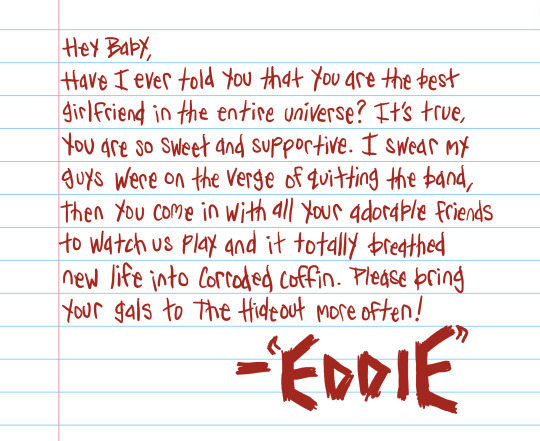 Hey Baby,
Have I ever told you that you are the best
girlfriend in the entire universe? It's true,
you are so sweet and supportive. I swear my
guys were on the verge of quitting the band,
then you come in with all your adorable friends
to watch us play and it totally breathed
new life into Corroded Coffin. Please bring
your gals to The Hideout more often!
-"EDDIE"